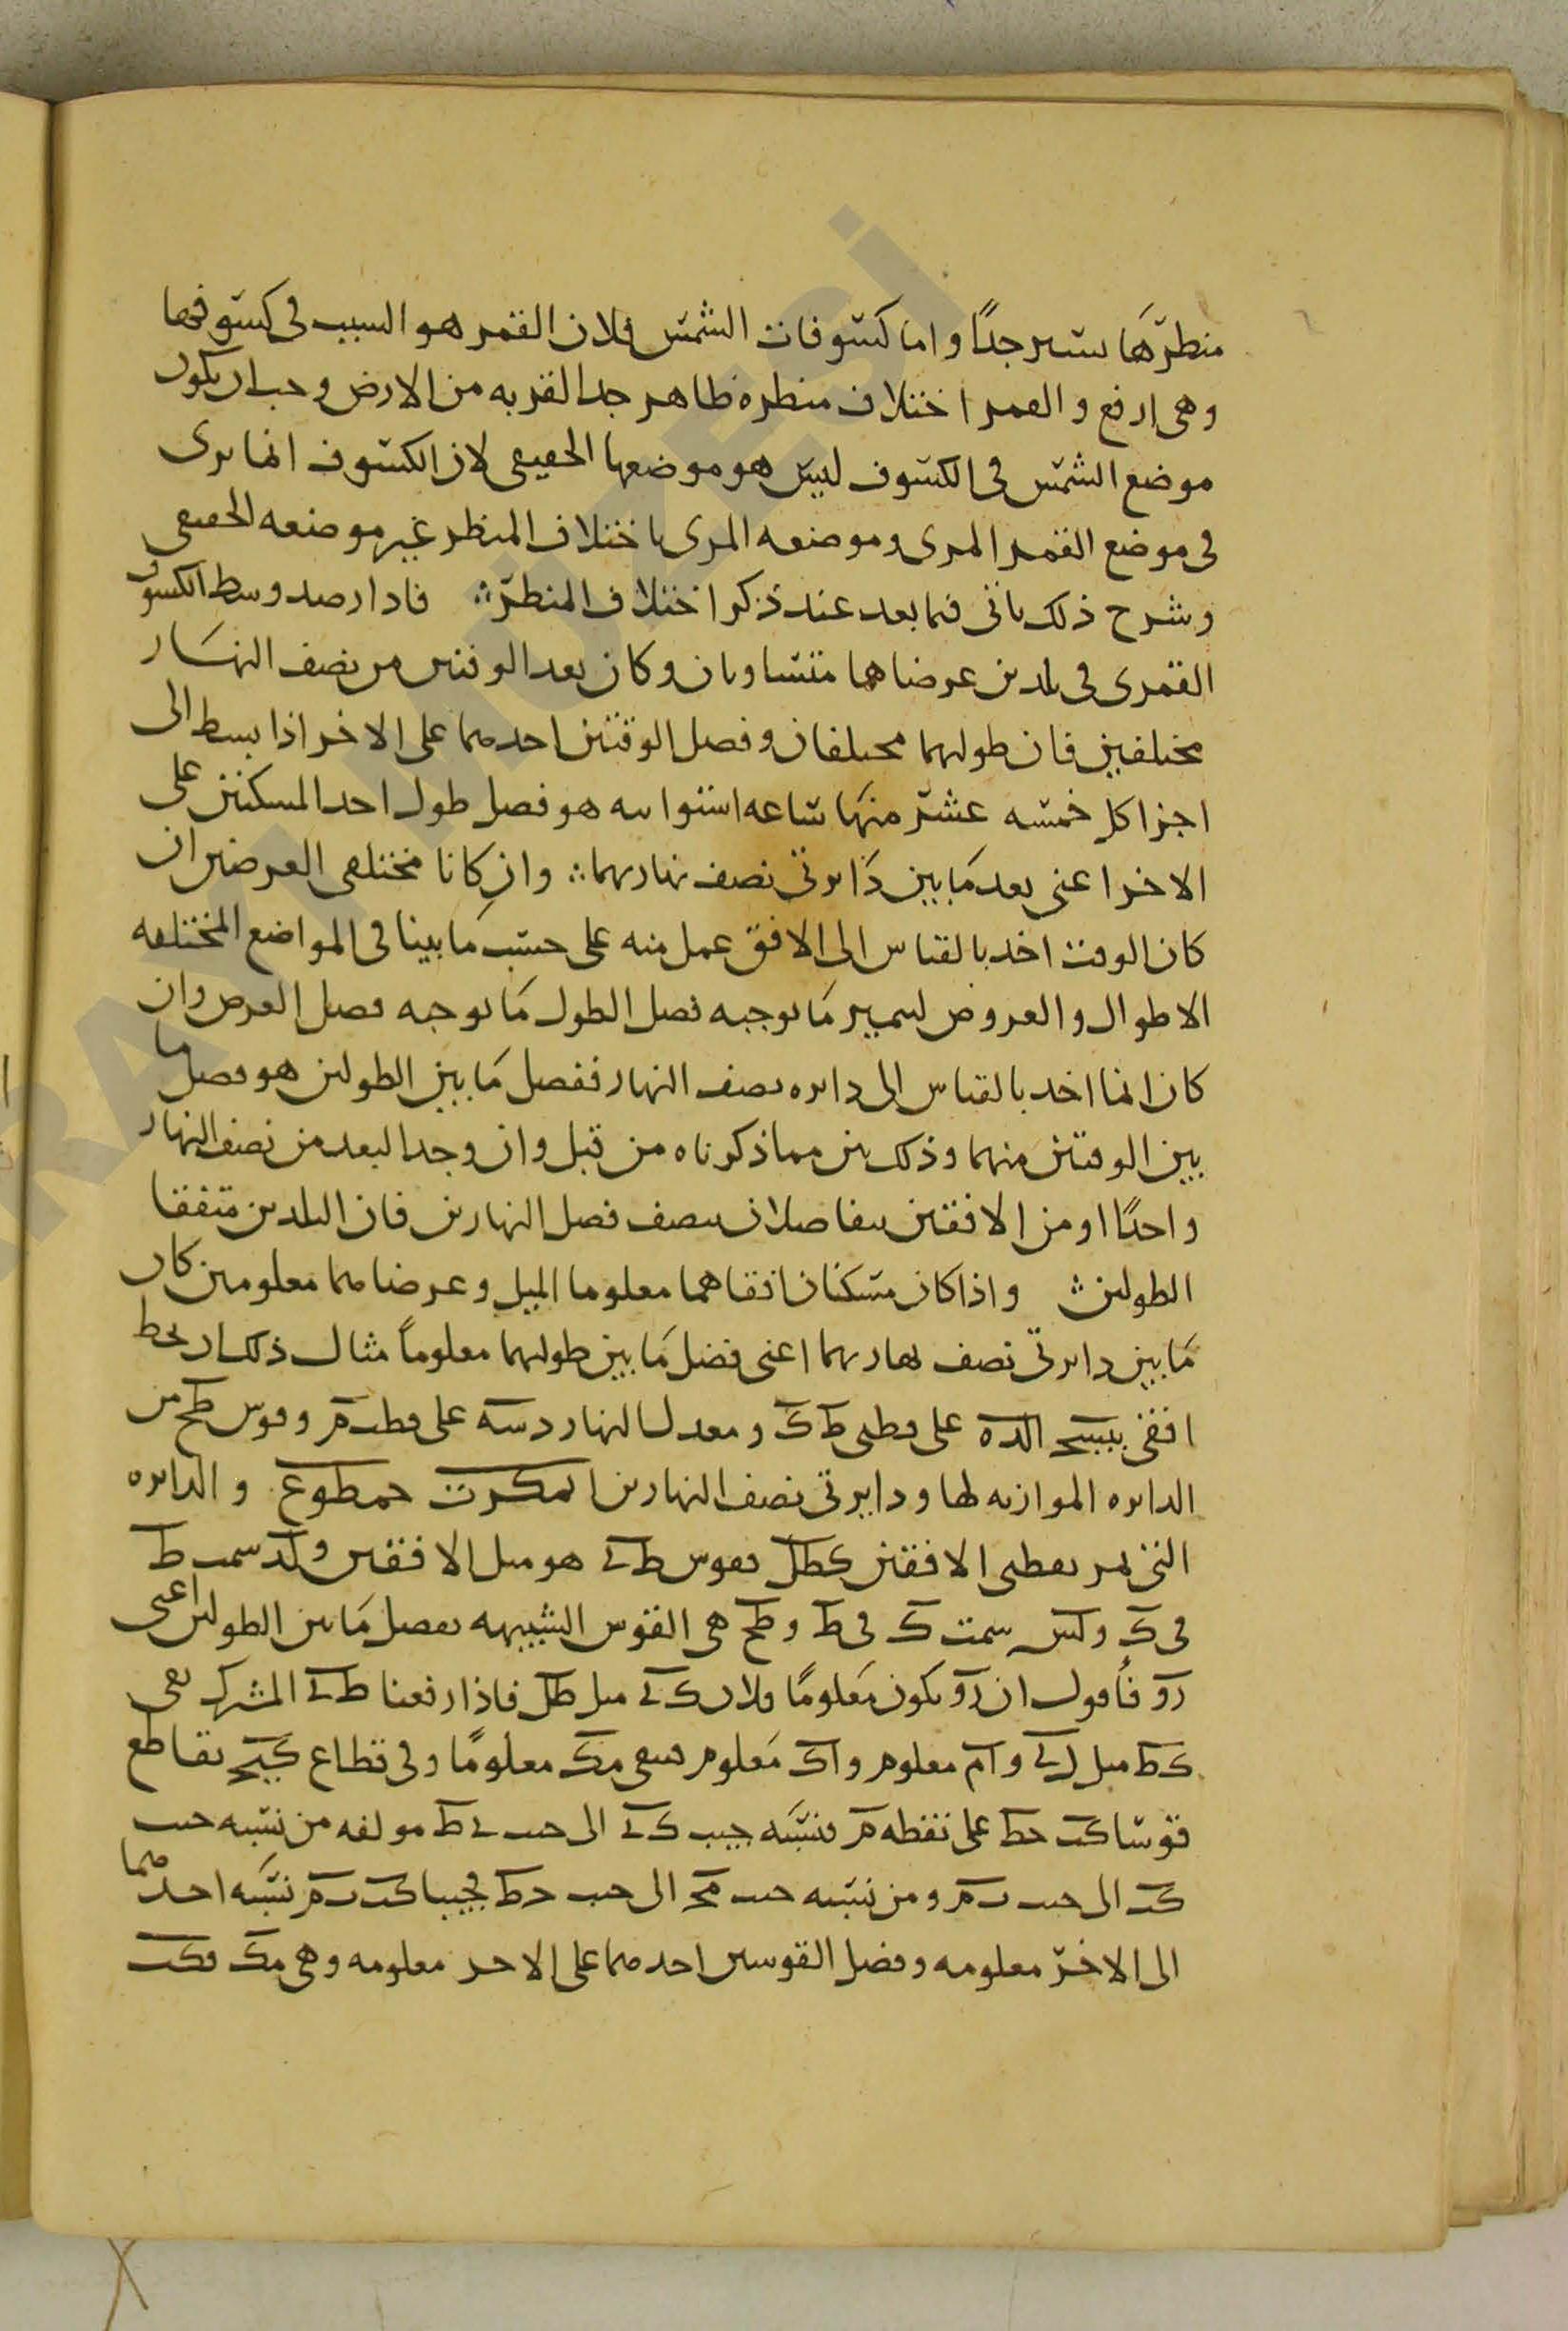 منظرها يسير جدًا واما كسوفات الشمس فلان القمر هو السبب فى كسوفها
وهى ارفع والقمر اختلاف منظره ظاهر جدا لقربه من الارض وجب ان يكون
موضع الشمس فى الكسوف ليس هو موضعها الحقيقى لان الكسوف انما يرى
فى موضع القمر المرى وموضعه المرى باختلاف المنظر غير موضعه الحقيقى
وشرح ذلك ياتى فيما بعد عند ذكر اختلاف المنظر فاذا رصد وسط الكسوف
القمرى فى بلدين عرضاهما متساويان وكان بعد الوقتين من نصف النهار
مختلفين فان طوليهما مختلفان وفضل الوقتين احدهما على الاخر اذا بسط الى
اجزا كل خمسه عشر منها ساعه استوائيه هو فضل طول احد المسكنين على
الاخر اعنى بعد ما بين دائرتى نصف نهاريهما وان كانا مختلفى العرضين ان
كان الوقت اخذ بالقياس الى الافق عمل منه على حسب ما بينا فى المواضع المختلفه
الاطوال والعروض لتمييز ما يوجبه فضل الطول مما يوجبه فضل العرض وان
كان انما اخذ بالقياس الى دائره نصف النهار ففضل ما بين الطولين هو فضل ما
بين الوقتين منهما وذلك بين مما ذكرناه من قبل وان وجد البعد من نصف النهار
واحدًا او من الافقين يتفاضلان بنصف فضل النهارين فان البلدين متفقا
الطولين واذا كان مسكنان افقاهما معلوما الميل وعرضاهما معلومين كان
ما بين دائرتى نصف نهاريهما اعنى فضل ما بين طوليهما معلومًا مثال ذلك ان نخط
افقى على قطبى ط ك ومعدل النهار على قطب م وقوس طح من
الدائره الموازيه لها ودائرتى نصف النهارين والدائره
التى تمر بقطبى الافقين كطل فقوس طى هو ميل الافقين سمت ط
فى ك سمت ك فى ط وطح هى القوس الشبيهه بفضل ما بين الطولين اعنى
رو فاقول ان رو يكون معلومًا فلان كى مثل طل فاذا رفعنا طى المشترك بقى
كط مثل لى وام معلوم واك معلوم فيبقى مك معلومًا وفى قطاع تقاطع
قوسا كت حط على نقطه م فنسبه جيب كى الى جيب ى ط مولفه من نسبه جيب
كت الى جيب ت م ومن نسبه جيب مح الى جيب حط فجيبا كت ت م نسبه احدهما
الى الاخر معلومه وفضل القوسين احدهما على الاخر معلومه وهى مك فكت